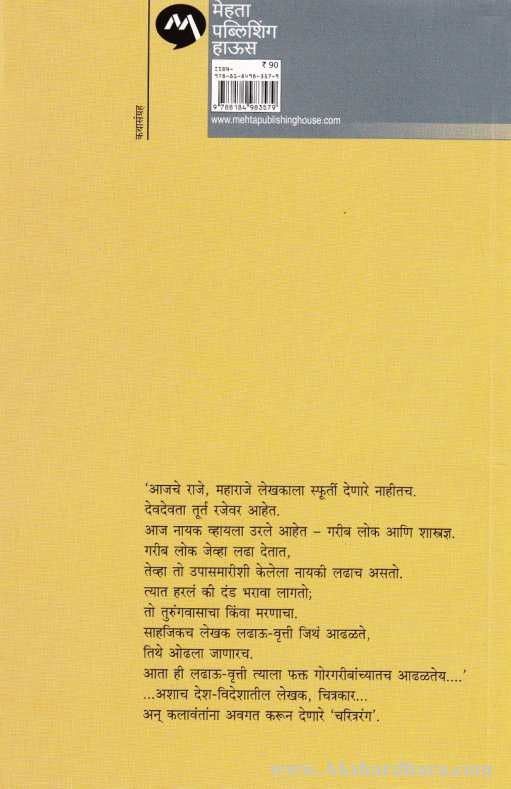 मेहता
पब्लिशिंग
हाऊस
ISBN- ₹ 90
978-81-8498-357-9
9788184983579
www.mehtapublishinghouse.com
कथासंग्रह
‘आजचे राजे, महाराजे लेखकाला स्फूर्ती देणारे नाहीतच.
देवदेवता तूर्त रजेवर आहेत.
आज नायक व्हायला उरले आहेत – गरीब लोक आणि शास्त्रज्ञ.
गरीब लोक जेव्हा लढा देतात,
तेव्हा तो उपासमारीशी केलेला नायकी लढाच असतो.
त्यात हरलं की दंड भरावा लागतो;
तो तुरुंगवासाचा किंवा मरणाचा.
साहजिकच लेखक लढाऊ-वृत्ती जिथं आढळते,
तिथे ओढला जाणारच.
आता ही लढाऊ-वृत्ती त्याला फक्त गोरगरीबांच्यातच आढळतेय....’
...अशाच देश-विदेशातील लेखक, चित्रकार...
अन् कलावंतांना अवगत करून देणारे ‘चरित्ररंग’.
www.Akshardhara.com